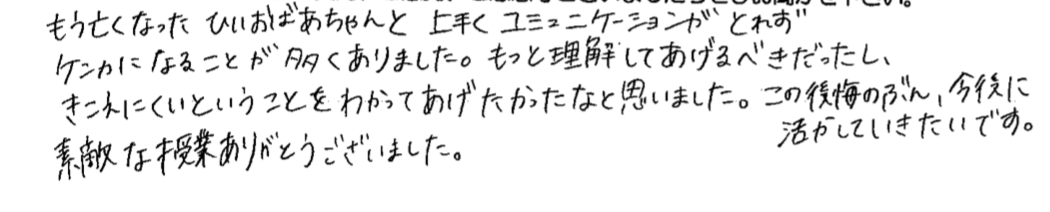 もう亡くなった ひいおばあちゃんと 上手く コミュニケーションが とれず
ケンカになることが多くありました。もっと理解してあげるべきだったし、
きこえにくいということをわかってあげたかったなと思いました。この後悔のぶん、今後に
活かしていきたいです。
素敵な授業ありがとうございました。